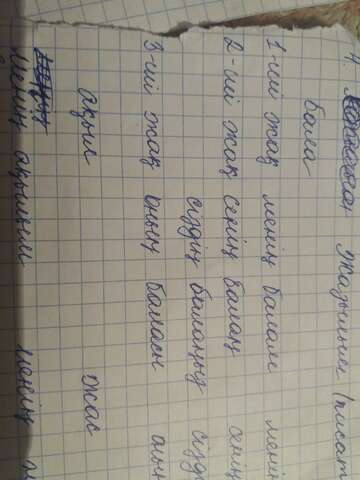 Жазылым /писат
Бала
1-ші жақ менің балам менің
2-ші жақ сенің балаң сенің
сіздің балаңыз сізд
3-ші жақ оның баласы оның
ақыл жас
менің ақылым менің